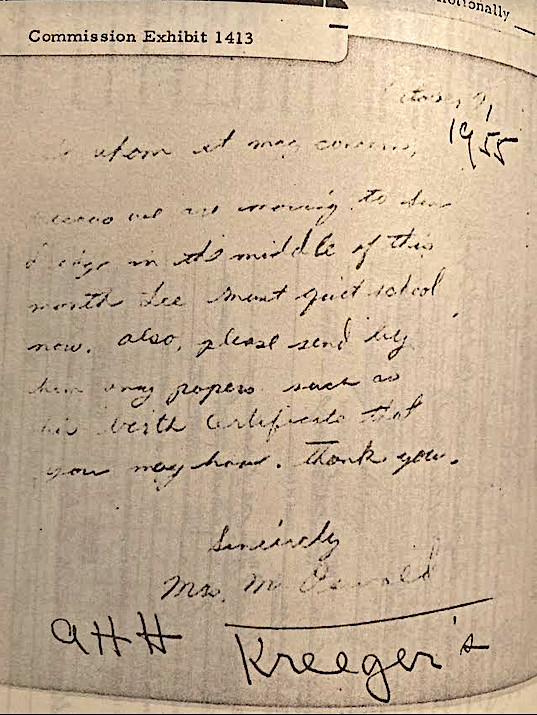 otionally
Commission Exhibit 1413
October 7,
1955
To whom it may concern,
Because we are moving to San
Diego in the middle of this
month Lee must quit school
now. Also, please send by
him any papers such as
his birth certificate that
you may have. Thank you.
Sincirely
Mrs. M Oswald
9HH
Kreeger's